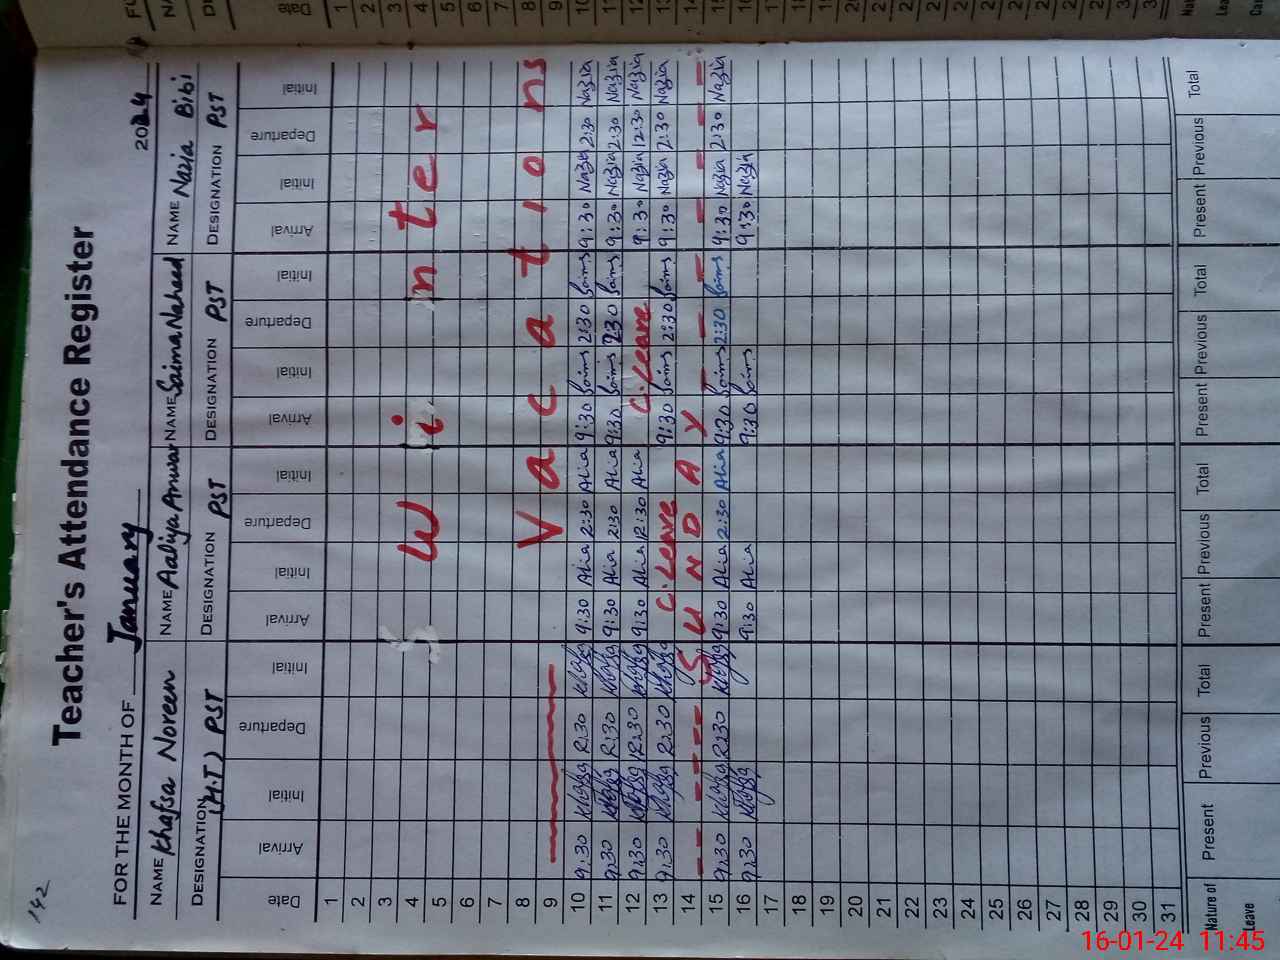 142
Teacher's Attendance Register
FOR THE MONTH OF January 2024
NAME Khafsa Noreen NAME Aaliya Anwar NAME Saima Naheed NAME Nazia Bibi
DESIGNATION (H.T) PST DESIGNATION PST DESIGNATION PST DESIGNATION PST
Date Arrival Initial Departure Initial Arrival Initial Departure Initial Arrival Initial Departure Initial Arrival Initial Departure Initial
1
2
3
4 Winter
5
6
7
8 Vacations
9
10 9:30 Khafsa 2:30 Khafsa 9:30 Alia 2:30 Alia 9:30 Saima 2:30 Saima 9:30 Nazia 2:30 Nazia
11 9:30 Khafsa 2:30 Khafsa 9:30 Alia 2:30 Alia 9:30 Saima 2:30 Saima 9:30 Nazia 2:30 Nazia
12 9:30 Khafsa 12:30 Khafsa 9:30 Alia 12:30 Alia C.Leave 9:30 Nazia 12:30 Nazia
13 9:30 Khafsa 2:30 Khafsa C.Leave 9:30 Saima 2:30 Saima 9:30 Nazia 2:30 Nazia
14 SUNDAY
15 9:30 Khafsa 2:30 Khafsa 9:30 Alia 2:30 Alia 9:30 Saima 2:30 Saima 9:30 Nazia 2:30 Nazia
16 9:30 Khafsa 9:30 Alia 9:30 Saima 9:30 Nazia
17
18
19
20
21
22
23
24
25
26
27
28
29
30
31
Nature of Leave Present Previous Total Present Previous Total Present Previous Total Present Previous Total
16-01-24 11:45